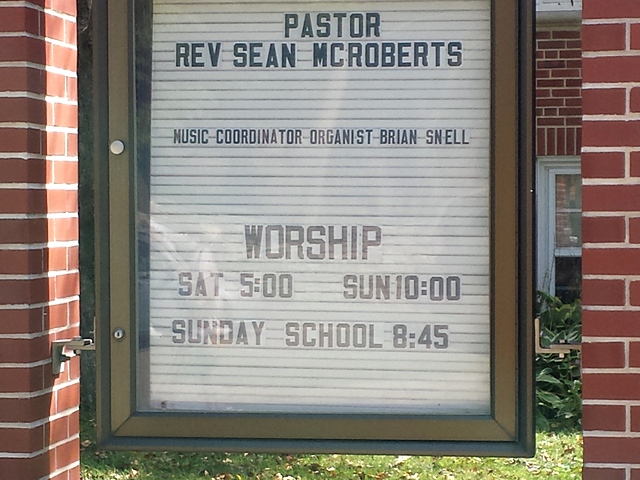 PASTOR
REV SEAN MCROBERTS
MUSIC COORDINATOR ORGANIST BRIAN SNELL
WORSHIP
SAT 5:00 SUN 10:00
SUNDAY SCHOOL 8:45